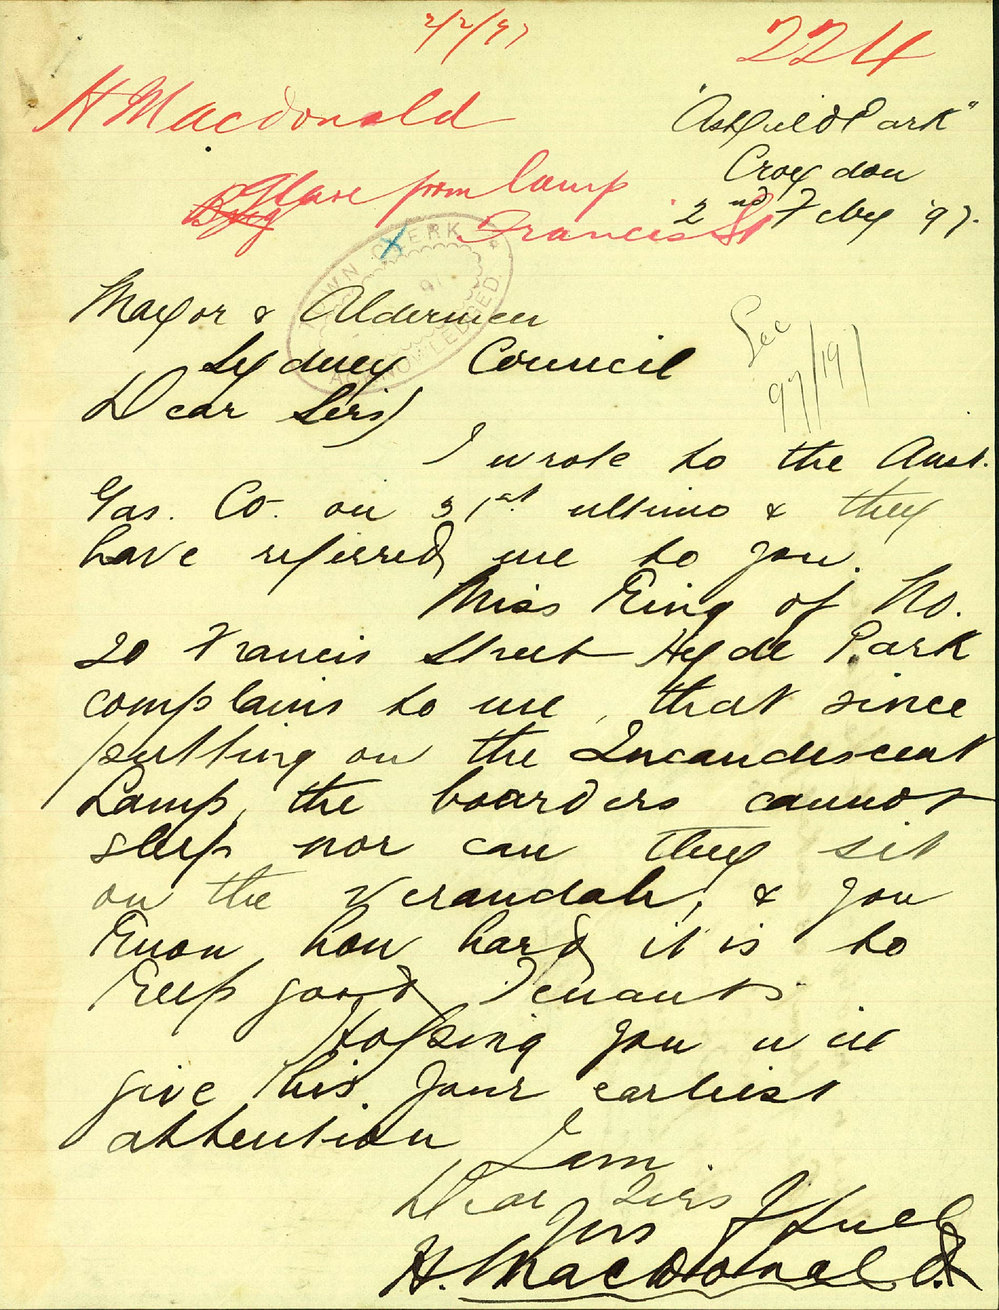 2/2/97
224
H Macdonald
"Ashfield Park"
Croydon
2nd Feby '97.
Glare from lamp
Francis St
TOWN CLERK
ACKNOWLEDGED.
Mayor & Aldermen
Sydney Council
Dear Sirs
See
97/191
I wrote to the Aust.
Gas. Co. on 31st ultimo & they
have referred me to you.
Miss King of No.
20 Francis Street Hyde Park
complains to me, that since
putting on the Incandescent
Lamp, the boarders cannot
sleep nor can they sit
on the verandah, & you
know how hard it is to
keep good Tenants.
Hopeing you will
give this your earliest
attention
I am
Dear Sirs
Yrs Ffully
H. Macdonald